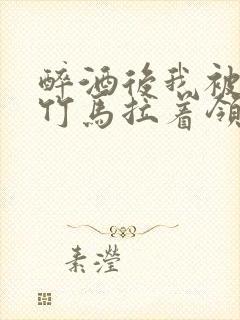 醉酒後我被
竹馬拉着領
素瀅